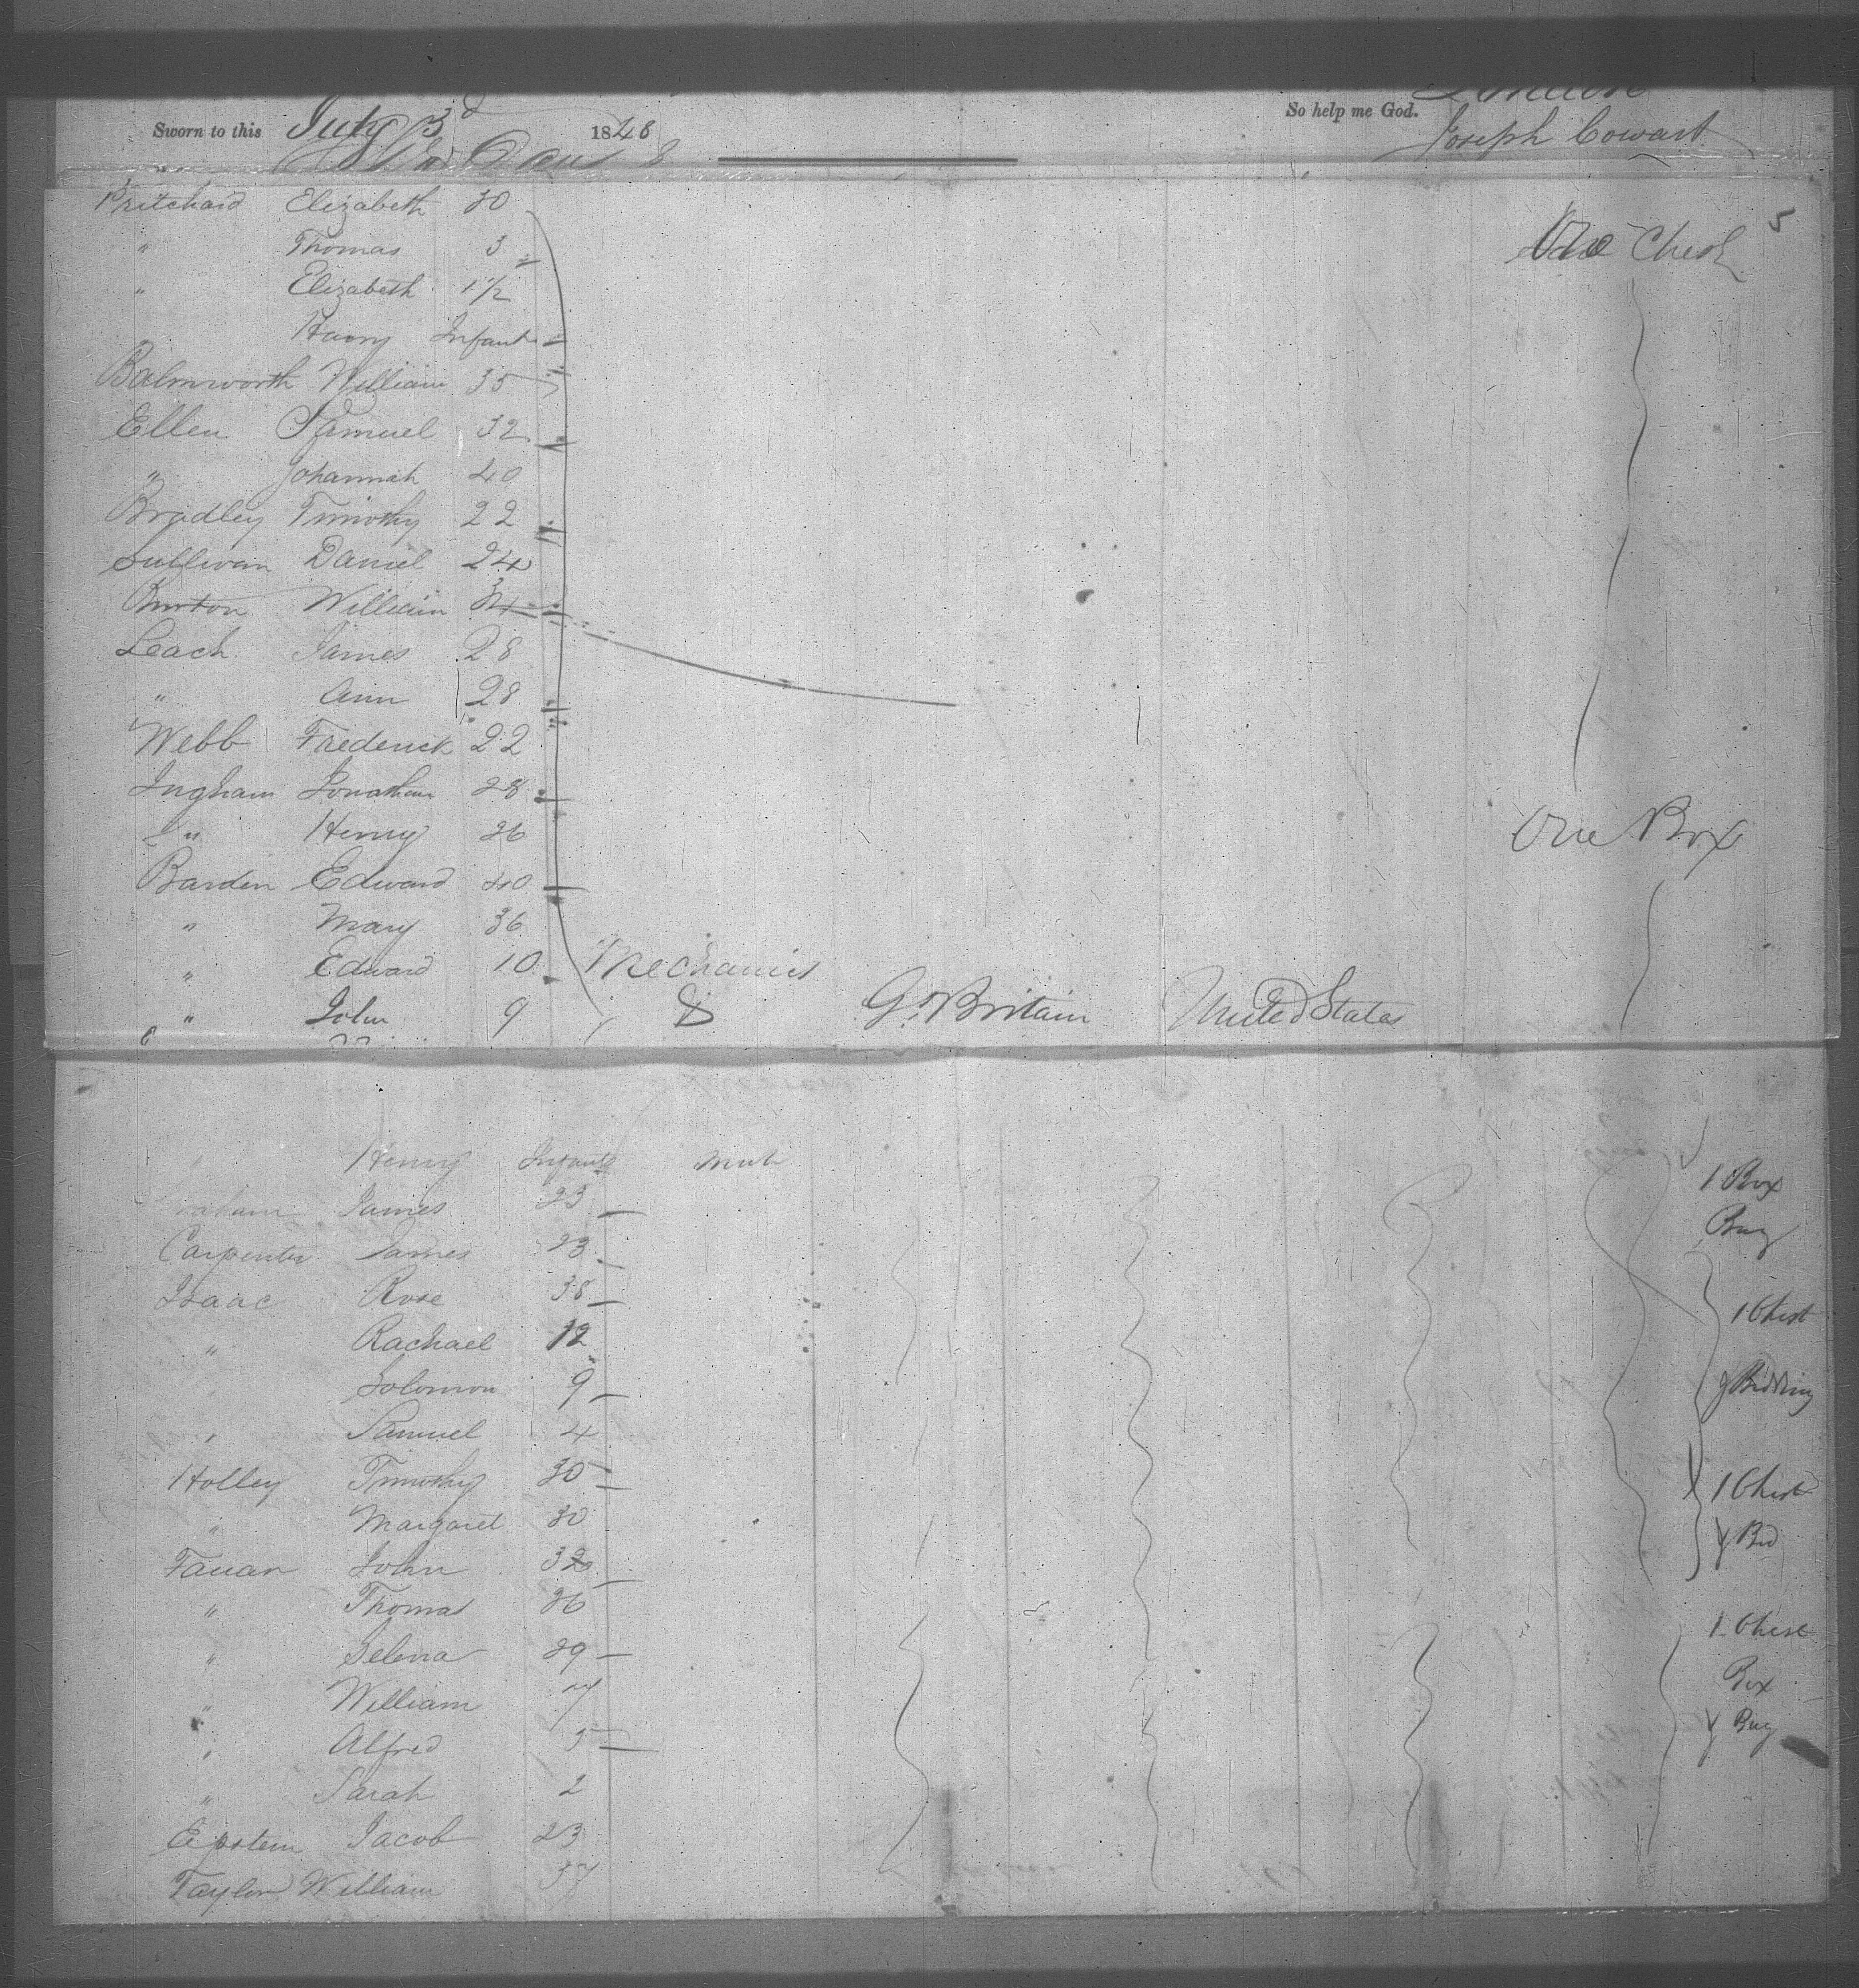 London
Sworn to this July 3d 1848 So help me God.
Joseph Cowart
5
Pritchard Elizabeth 30
" Thomas 3 One Chest
" Elizabeth 1 1/2
Harry Infant
Balmworth William 35
Ellen Samuel 32
" Johannah 40
Bradley Timothy 22
Sullivan Daniel 24
Burton William 34
Leach James 28
" Ann 28
Webb Frederick 22
Ingham Jonathan 28
" Henry 26 One Box
Barden Edward 40
" Mary 36
" Edward 10 Mechanics
" John 9 & Gt. Britain United States
" Henry Infant 1 Box
James 23 Bag
Carpenter James 23
Isaac Rose 38 1 Chest
" Rachael 12
Solomon 9 & Bedding
" Samuel 4
Holley Timothy 30 1 Chest
" Margaret 30 & Bed
John 32
" Thomas 26 1 Chest
" Selena 29
" William 7 Box
" Alfred 5 & Bag
" Sarah 2
Epstein Jacob 23
Taylor William 37